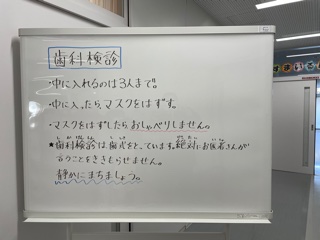 歯科検診
・中に入れるのは3人まで。
・中に入ったら、マスクをはずす。
・マスクをはずしたらおしゃべりしません。
★歯科検診は歯式をとっています。絶対にお医者さんが
言うことをききもらせません。
静かにまちましょう。